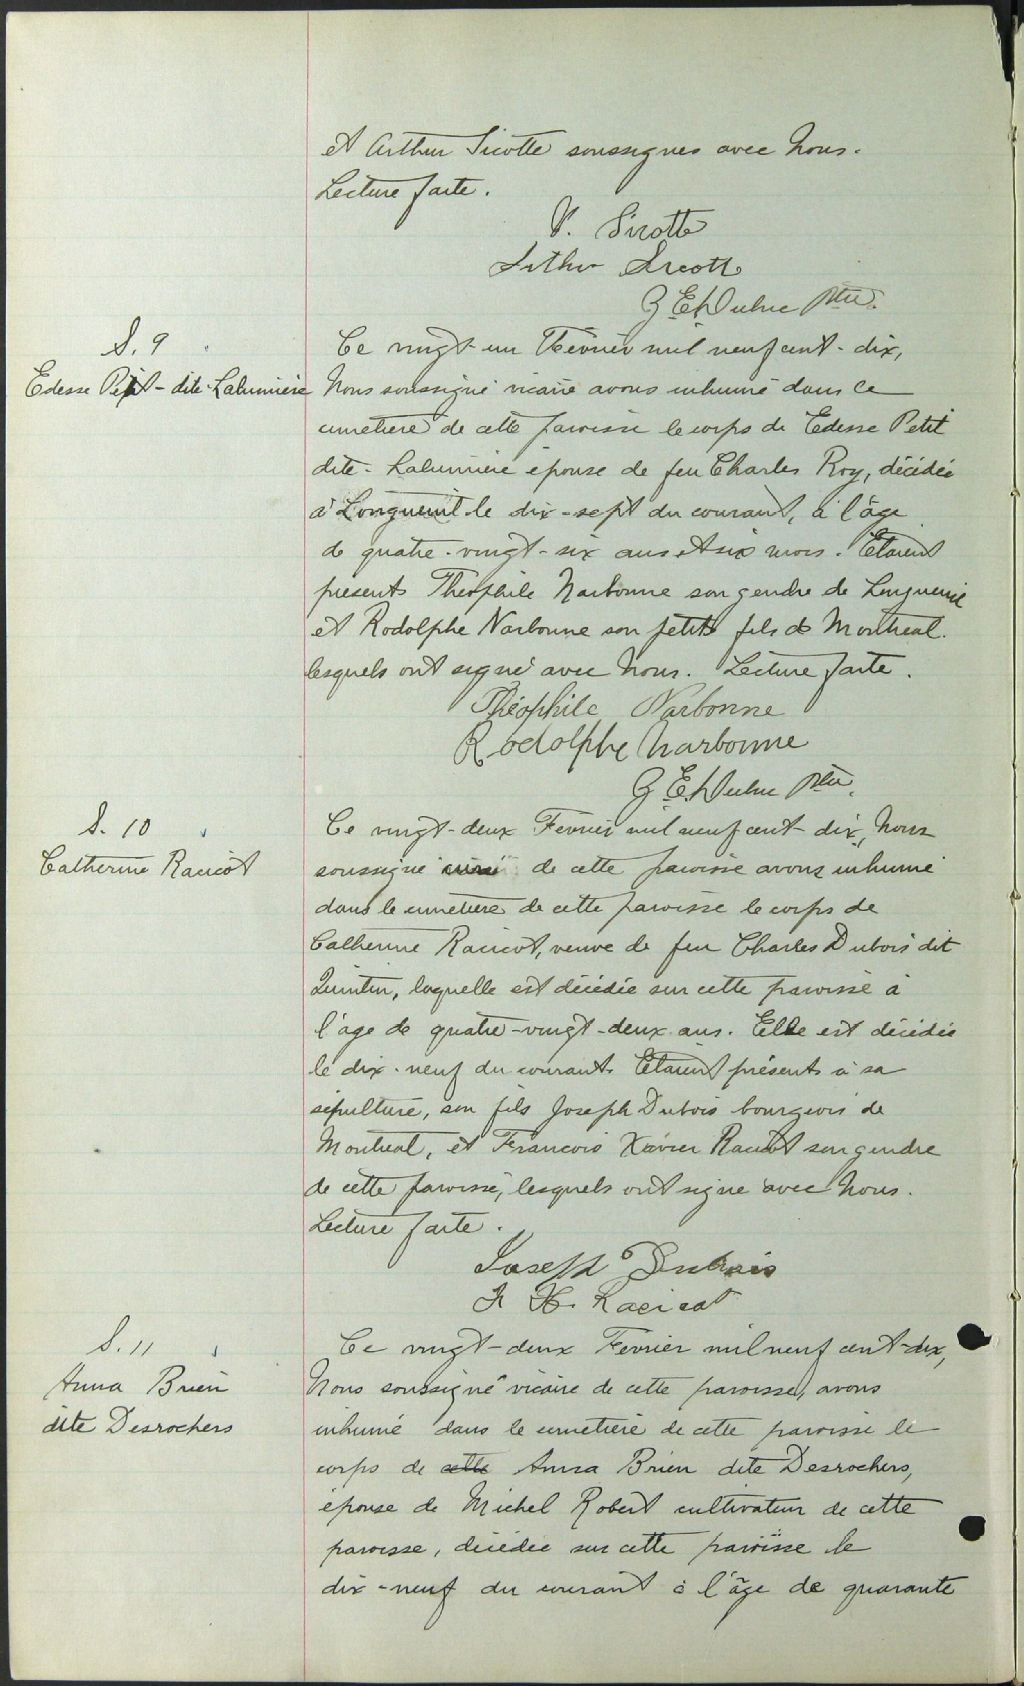 et Arthur Sicotte soussignes avec Nous.
Lecture faite.
V. Sicotte
Arthur Sicotte
G. E. Dubuc Ptre.
S. 9
Edesse Petit-dite-Lalumière
Ce vingt-un Février mil neuf cent-dix,
Nous soussigné vicaire avons inhumé dans le
cimetiere de cette paroisse le corps de Edesse Petit
dite-Lalumière épouse de feu Charles Roy, décédée
à Longueuil le dix-sept du courant, à l'âge
de quatre-vingt-six ans et six mois. Etaient
présents Theophile Narbonne son gendre de Longueuil
et Rodolphe Narbonne son petit fils de Montreal.
lesquels ont signé avec Nous. Lecture faite.
Théophile Narbonne
Rodolphe Narbonne
G. E. Dubuc Ptre.
S. 10
Catherine Racicot
Ce vingt-deux Fevrier mil neuf cent-dix, Nous
soussigné curé de cette paroisse avons inhumé
dans le cimetiere de cette paroisse le corps de
Catherine Racicot, veuve de feu Charles Dubois dit
Quintin, laquelle est décédée sur cette paroisse à
l'âge de quatre-vingt-deux ans. Elle est décédée
le dix-neuf du courant. Etaient présents à sa
sépulture, son fils Joseph Dubois bourgeois de
Montreal, et Francois Xavier Racicot son gendre
de cette paroisse, lesquels ont signé avec Nous.
Lecture faite.
Joseph Dubois
F. X. Racicot
S. 11
Anna Brien
dite Desrochers
Ce vingt-deux Fevrier mil neuf cent-dix,
Nous soussigné vicaire de cette paroisse, avons
inhumé dans le cimetière de cette paroisse le
corps de cette Anna Brien dite Desrochers,
épouse de Michel Robert cultivateur de cette
paroisse, décédée sur cette paroisse le
dix-neuf du courant à l'âge de quarante